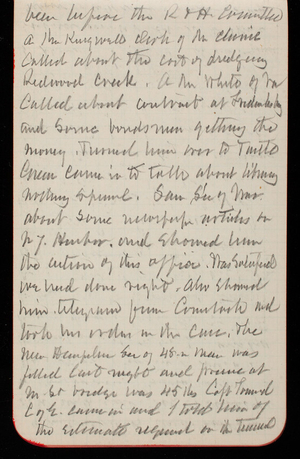 been before the R & H Committee
A Mr Kingwell clerk of the
Called about the cost of dredging
Redwood Creek. A Mr White of Va
Called about contract at Fredericksburg
and some bondsmen getting the
money. Turned him over to Tuttle
Green came in to talk about library
nothing special. Saw Sec of War
about some newspaper articles on
N.Y. Harbor. and showed him
the action of this office. Was satisfied
we had done right. Also showed
him telegram from Comstock and
took his orders in the case. The
New Hampshire Sec of 45 men was
filled last night and
bridge was 45 this Capt
C of E. came in and I told him of
the estimate required on the tunnel